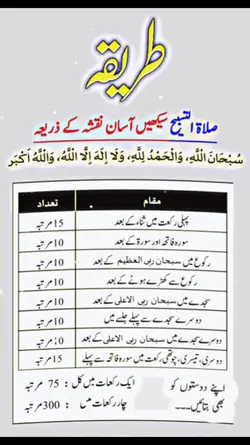 طریقہ
صلاۃ التسبیح سیکھیں آسان نقشہ کے ذریعہ
سُبْحَانَ اللَّهِ، وَالْحَمْدُ لِلَّهِ، وَلَا إِلَهَ إِلَّا اللَّهُ، وَاللَّهُ أَكْبَر
مقام تعداد
پہلی رکعت میں ثناء کے بعد 15 مرتبہ
سورہ فاتحہ اور سورۃ کے بعد 10 مرتبہ
رکوع میں سبحان ربی العظیم کے بعد 10 مرتبہ
رکوع سے کھڑے ہونے کے بعد 10 مرتبہ
سجدے میں سبحان ربی الاعلیٰ کے بعد 10 مرتبہ
دوسرے سجدے سے پہلے جلسے میں 10 مرتبہ
دوسرے سجدے میں سبحان ربی الاعلیٰ کے بعد 10 مرتبہ
دوسری، تیسری، چوتھی رکعت میں سورہ فاتحہ سے پہلے 15 مرتبہ
اپنے دوستوں کو ایک رکعات میں کل : 75 مرتبہ
بھی بتائیں... چار رکعات میں : 300 مرتبہ